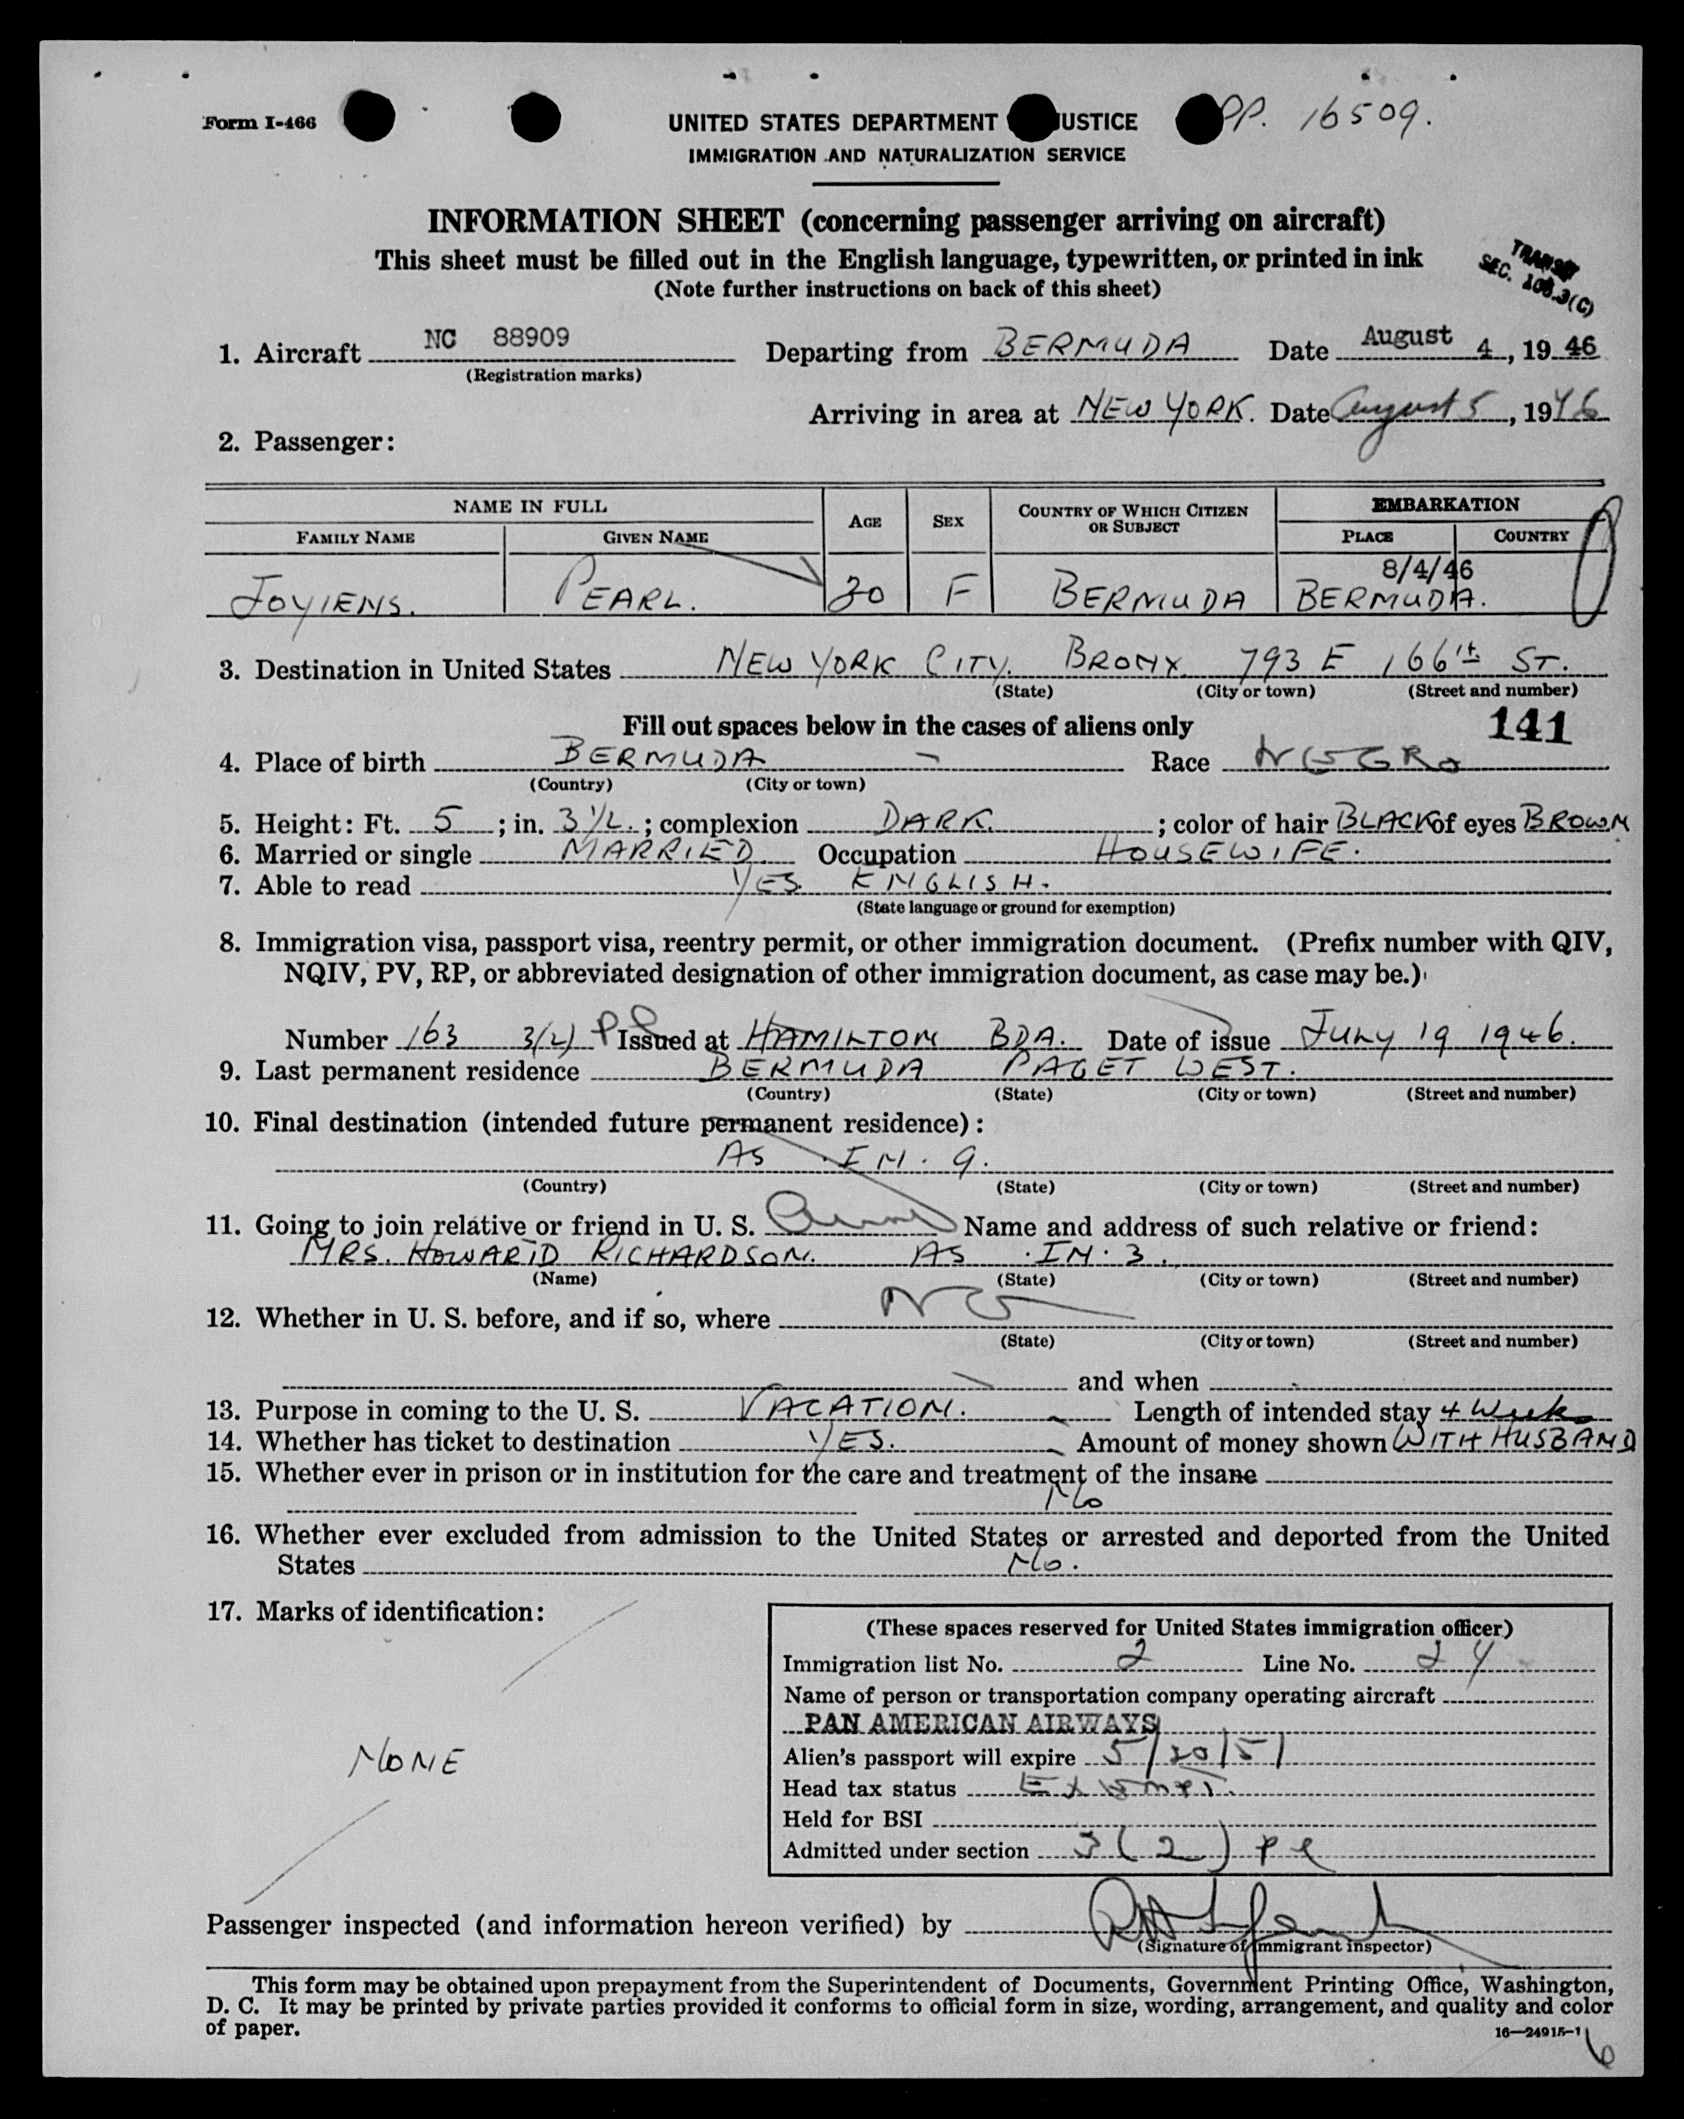 Form I-466
UNITED STATES DEPARTMENT USTICE
PP. 16509.
IMMIGRATION AND NATURALIZATION SERVICE
INFORMATION SHEET (concerning passenger arriving on aircraft)
This sheet must be filled out in the English language, typewritten, or printed in ink
(Note further instructions on back of this sheet)
TRANSIT
SEC. 108.3(C)
1. Aircraft NC 88909 Departing from BERMUDA Date August 4, 19 46
(Registration marks)
Arriving in area at NEW YORK. Date August 5, 1946
2. Passenger:
NAME IN FULL AGE SEX COUNTRY OF WHICH CITIZEN OR SUBJECT EMBARKATION
FAMILY NAME GIVEN NAME PLACE COUNTRY
8/4/46
JOYIENS. PEARL. 30 F BERMUDA BERMUDA.
3. Destination in United States NEW YORK CITY. BRONX 793 E 166th ST.
(State) (City or town) (Street and number)
Fill out spaces below in the cases of aliens only 141
4. Place of birth BERMUDA Race NEGRO
(Country) (City or town)
5. Height: Ft. 5; in. 3 1/2.; complexion DARK.; color of hair BLACK of eyes BROWN
6. Married or single MARRIED. Occupation HOUSEWIFE.
7. Able to read YES. ENGLISH.
(State language or ground for exemption)
8. Immigration visa, passport visa, reentry permit, or other immigration document. (Prefix number with QIV,
NQIV, PV, RP, or abbreviated designation of other immigration document, as case may be.)
Number 163 3(2) Pl Issued at HAMILTON BDA. Date of issue JULY 19 1946.
9. Last permanent residence BERMUDA PAGET WEST.
(Country) (State) (City or town) (Street and number)
10. Final destination (intended future permanent residence):
AS IN. 9.
(Country) (State) (City or town) (Street and number)
11. Going to join relative or friend in U. S. Name and address of such relative or friend:
MRS. HOWARD RICHARDSON. AS IN. 3.
(Name) (State) (City or town) (Street and number)
12. Whether in U. S. before, and if so, where NO
(State) (City or town) (Street and number)
and when
13. Purpose in coming to the U. S. VACATION. Length of intended stay 4 Weeks
14. Whether has ticket to destination YES. Amount of money shown WITH HUSBAND
15. Whether ever in prison or in institution for the care and treatment of the insane
No
16. Whether ever excluded from admission to the United States or arrested and deported from the United
States No.
17. Marks of identification:
NONE
(These spaces reserved for United States immigration officer)
Immigration list No. 2 Line No. 24
Name of person or transportation company operating aircraft
PAN AMERICAN AIRWAYS
Alien's passport will expire 5/20/51
Head tax status Exempt.
Held for BSI
Admitted under section 3(2) pl
Passenger inspected (and information hereon verified) by
(Signature of immigrant inspector)
This form may be obtained upon prepayment from the Superintendent of Documents, Government Printing Office, Washington,
D. C. It may be printed by private parties provided it conforms to official form in size, wording, arrangement, and quality and color
of paper.
16—24915-1
6